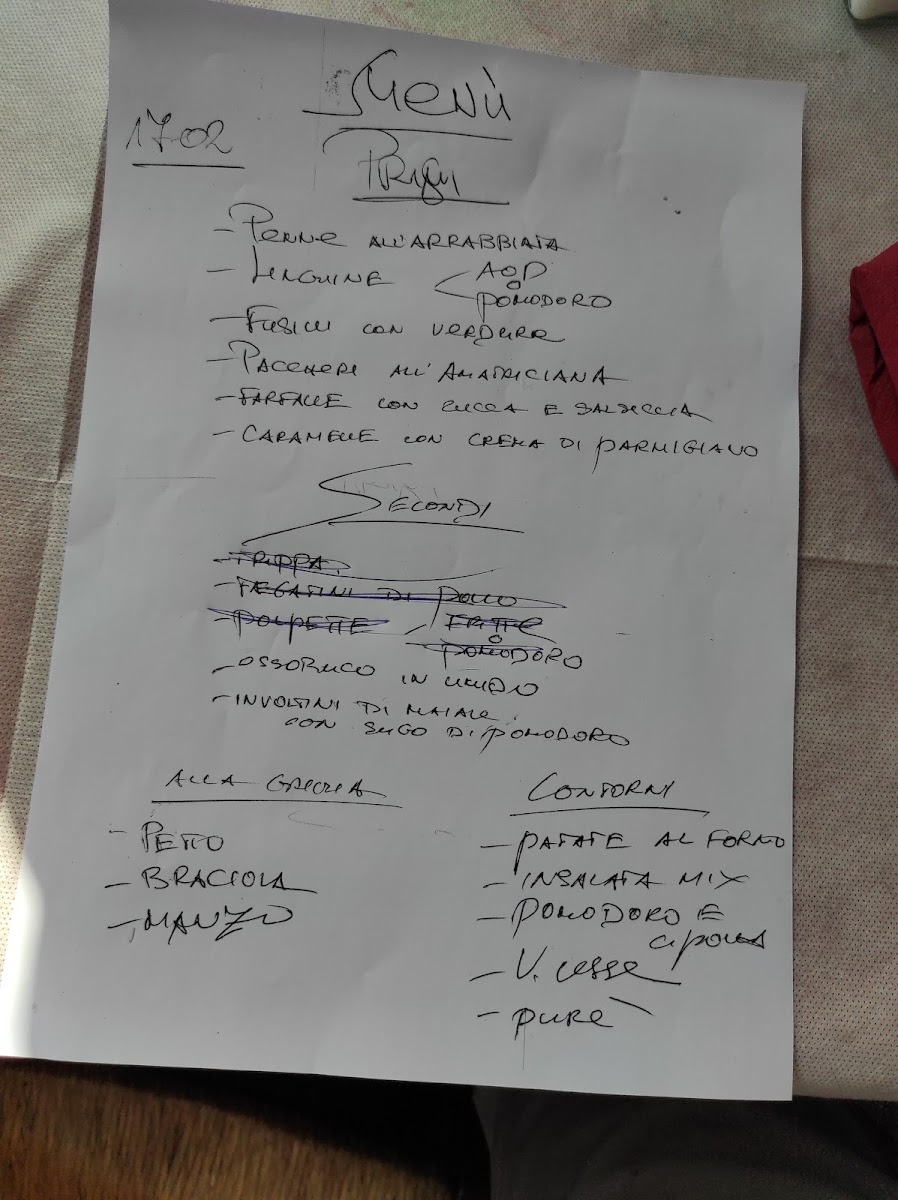 Menù
17-02
Primi
- Penne all'arrabbiata
- Linguine < AOP
o
pomodoro
- Fusilli con verdure
- Paccheri all'Amatriciana
- Farfalle con zucca e salsiccia
- Caramelle con crema di parmigiano
Secondi
- Trippa
- Fegatini di pollo
- Polpette / fritte
o
pomodoro
- Ossobuco in umido
- Involtini di maiale
con sugo di pomodoro
Alla griglia
- Petto
- Braciola
- Manzo
Contorni
- Patate al forno
- Insalata mix
- Pomodoro e
cipolla
- V. cesse
- purè